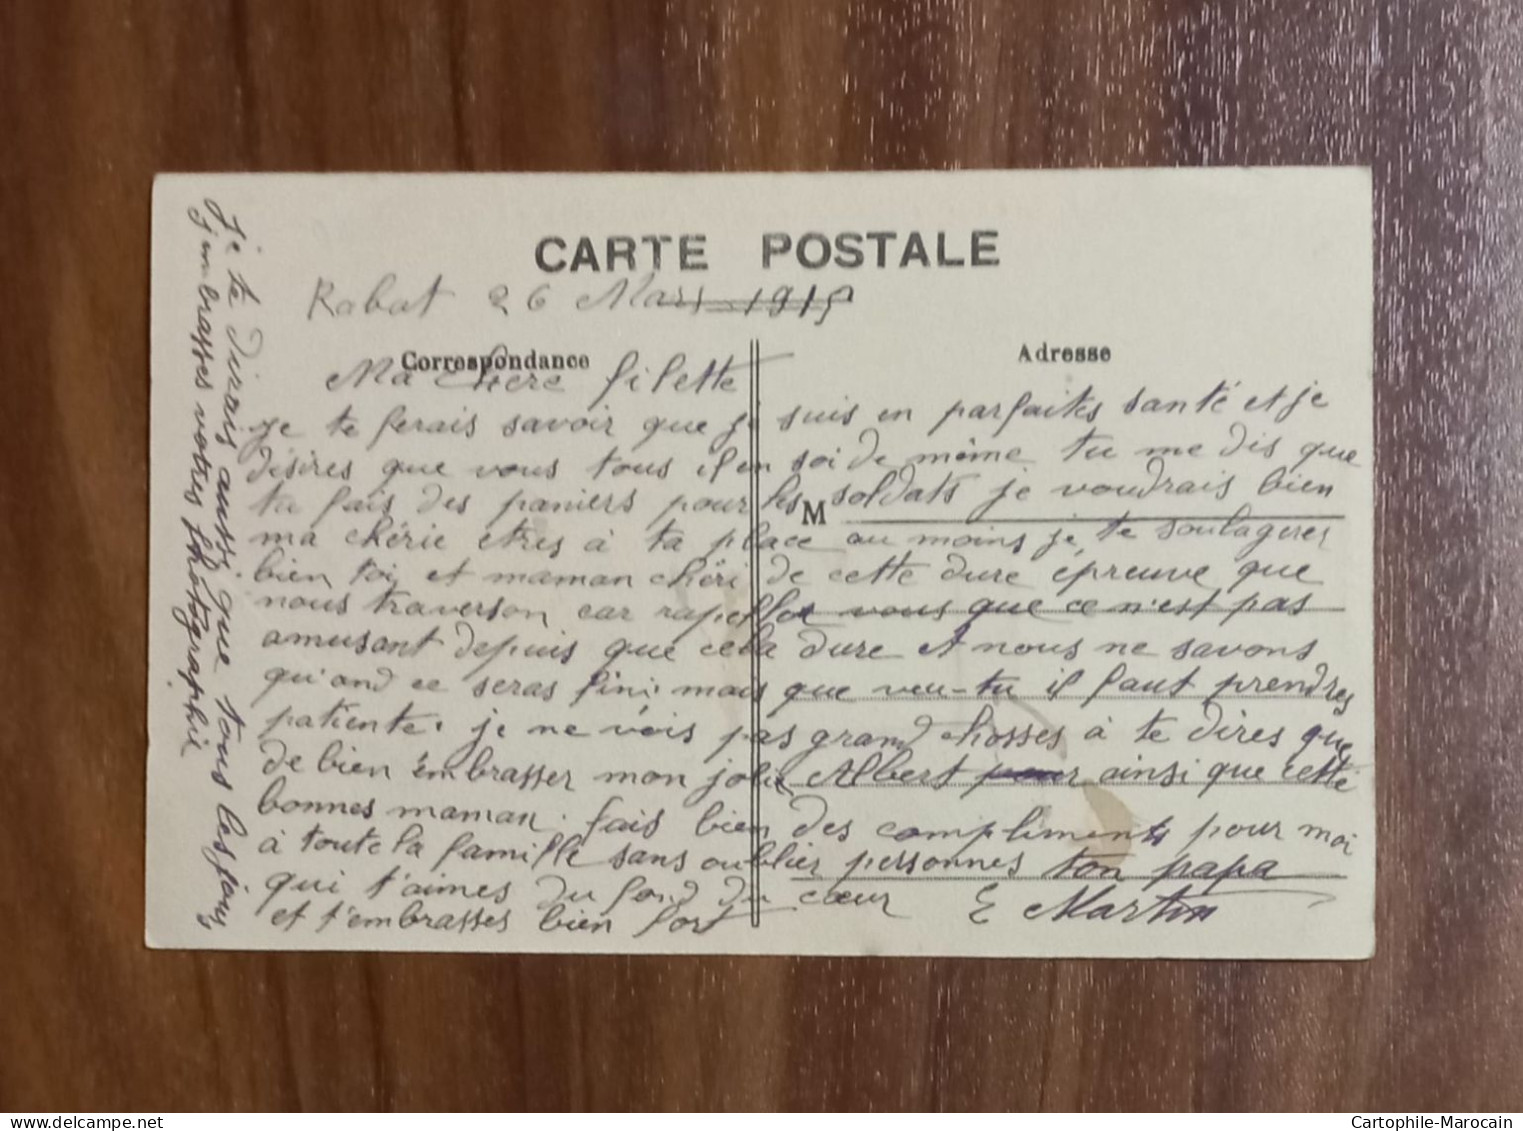 CARTE POSTALE
Rabat 26 Mars 1915
Correspondance
Adresse
Ma chere filette
je te ferais savoir que je suis en parfaites santé et je
désires que vous tous il en soi de même tu me dis que
tu fais des paniers pour les soldats je voudrais bien
M
ma chérie etres à ta place au moins je te soulagerer
bien toi et maman chéri de cette dure épreuve que
nous traverson car rapelle vous que ce n'est pas
amusant depuis que cela dure et nous ne savons
qu'and ce seras fini mais que veu-tu il faut prendres
patiente. je ne vois pas grand chosses à te dires que
de bien embrasser mon jolie Albert ainsi que cette
bonnes maman. fais bien des compliments pour moi
à toute la famille sans oublier personnes ton papa
qui t'aimes du fond du cœur E Martin
et t'embrasses bien fort
je te dirais aussi que tous les jours
j'embrasses votres photographie
Cartophile-Marocain